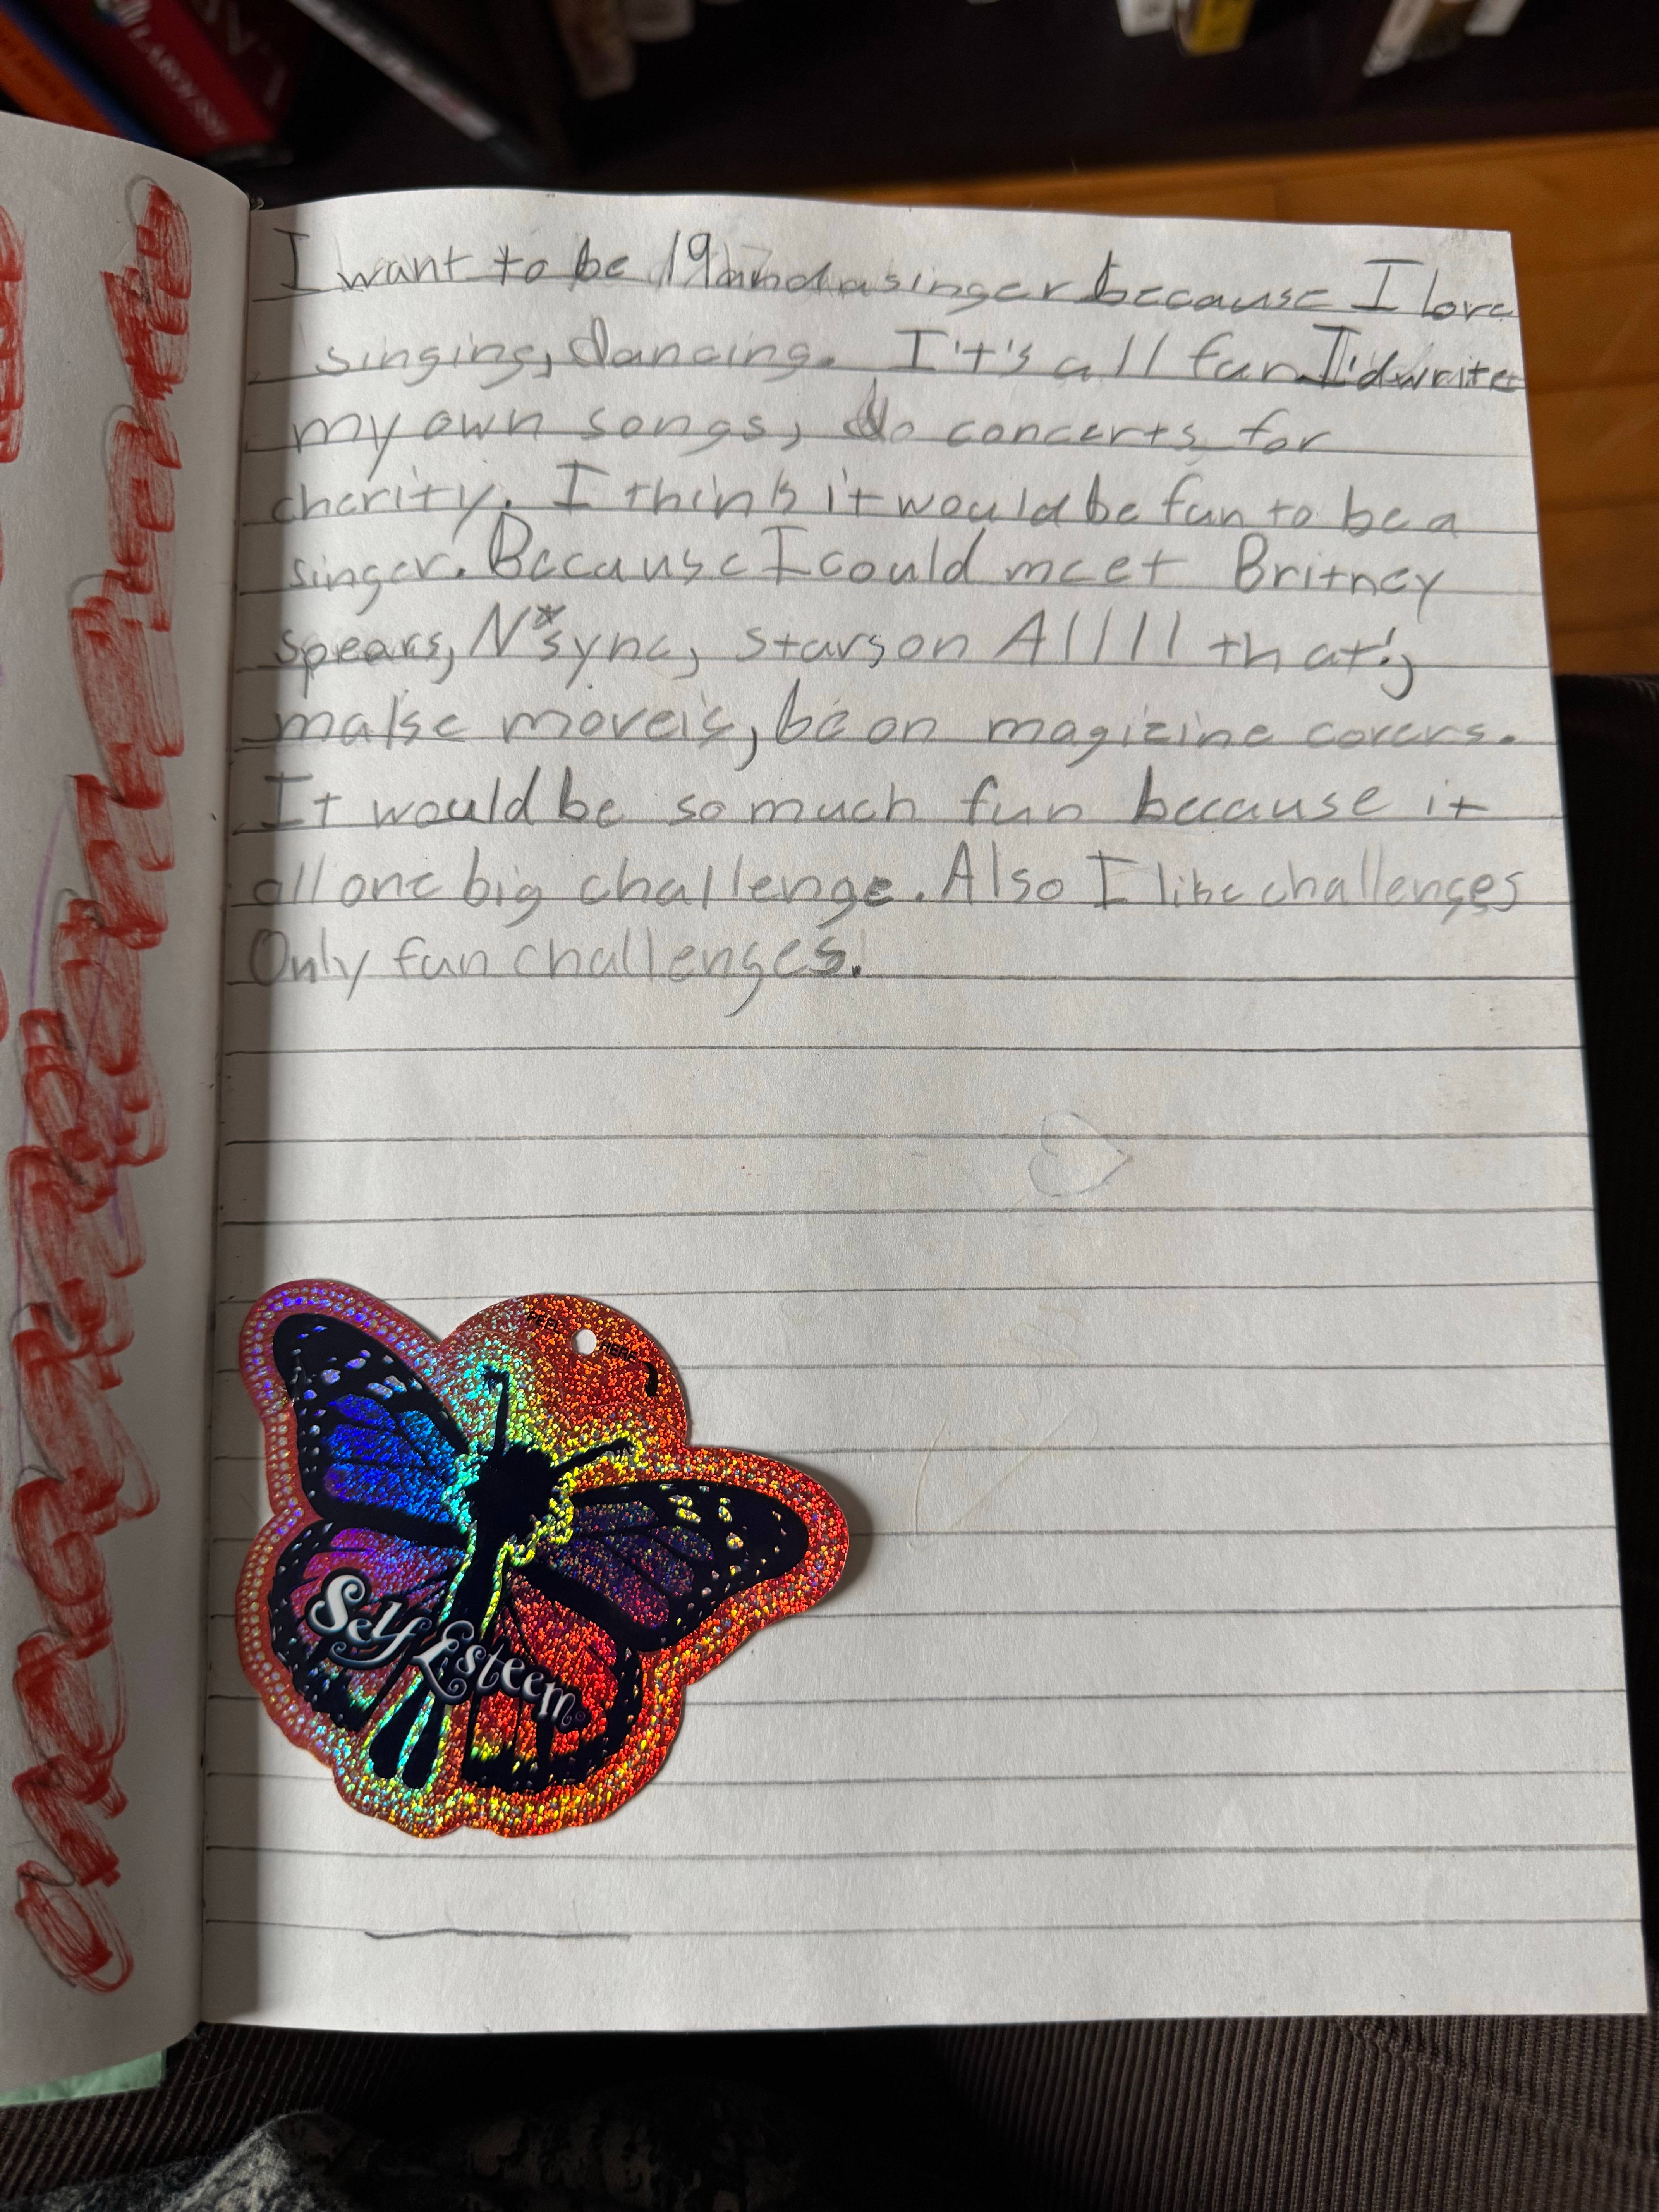 LAROUSSE
I want to be 19 and a singer because I love
singing, dancing. It's all fun. I'd write
my own songs, do concerts for
cherity. I think it would be fun to be a
singer. Because I could meet Britney
spears, N*sync, stars on Allll that!,
make moveis, be on magizine covers.
It would be so much fun because it
all one big challenge. Also I like challenges
Only fun challenges.
PEEL HERE
Self Esteem